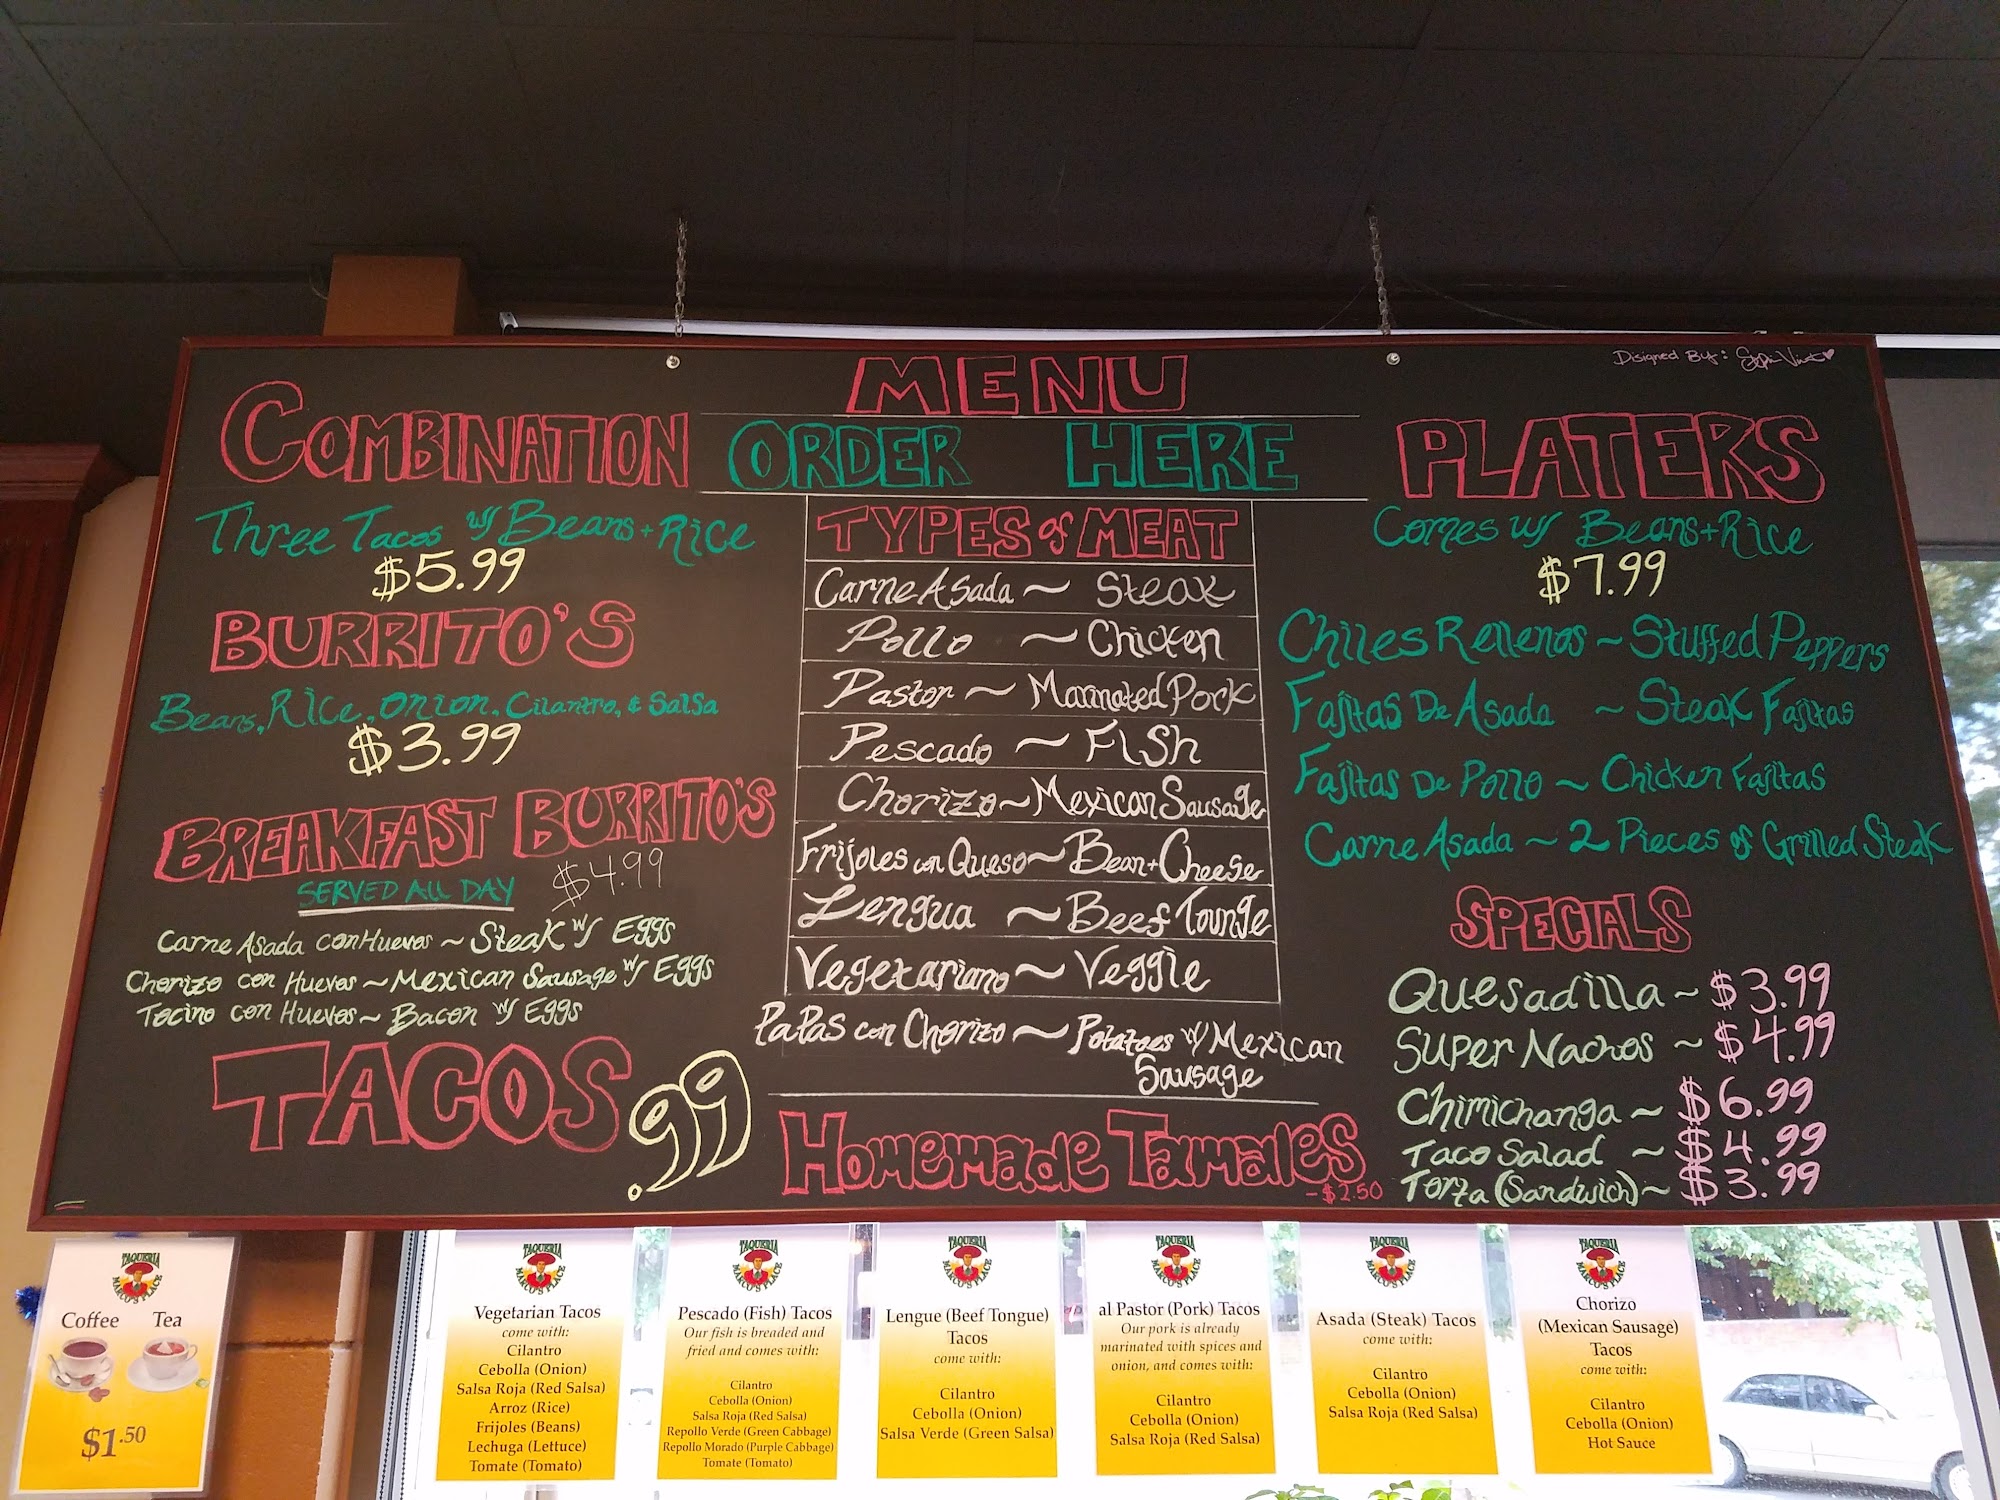 MENU
ORDER HERE
Disigned By:
COMBINATION
Three Tacos w/ Beans + Rice
$5.99
BURRITO'S
Beans, Rice, Onion, Cilantro, & Salsa
$3.99
BREAKFAST BURRITO'S
SERVED ALL DAY $4.99
Carne Asada con Huevos ~ Steak w/ Eggs
Chorizo con Huevos ~ Mexican Sausage w/ Eggs
Tocino con Huevos ~ Bacon w/ Eggs
TACOS .99
TYPES of MEAT
Carne Asada ~ Steak
Pollo ~ Chicken
Pastor ~ Marinated Pork
Pescado ~ Fish
Chorizo ~ Mexican Sausage
Frijoles con Queso ~ Bean + Cheese
Lengua ~ Beef Tounge
Vegetariano ~ Veggie
Papas con Chorizo ~ Potatoes w/ Mexican
Sausage
Homemade Tamales
- $2.50
PLATERS
Comes w/ Beans + Rice
$7.99
Chiles Rellenos ~ Stuffed Peppers
Fajitas De Asada ~ Steak Fajitas
Fajitas De Pollo ~ Chicken Fajitas
Carne Asada ~ 2 Pieces of Grilled Steak
SPECIALS
Quesadilla ~ $3.99
Super Nachos ~ $4.99
Chimichanga ~ $6.99
Taco Salad ~ $4.99
Torta (Sandwich) ~ $3.99
TAQUERIA
MARCO'S PLACE
Coffee Tea
$1.50
TAQUERIA
MARCO'S PLACE
Vegetarian Tacos
come with:
Cilantro
Cebolla (Onion)
Salsa Roja (Red Salsa)
Arroz (Rice)
Frijoles (Beans)
Lechuga (Lettuce)
Tomate (Tomato)
TAQUERIA
MARCO'S PLACE
Pescado (Fish) Tacos
Our fish is breaded and
fried and comes with:
Cilantro
Cebolla (Onion)
Salsa Roja (Red Salsa)
Repollo Verde (Green Cabbage)
Repollo Morado (Purple Cabbage)
Tomate (Tomato)
TAQUERIA
MARCO'S PLACE
Lengue (Beef Tongue)
Tacos
come with:
Cilantro
Cebolla (Onion)
Salsa Verde (Green Salsa)
TAQUERIA
MARCO'S PLACE
al Pastor (Pork) Tacos
Our pork is already
marinated with spices and
onion, and comes with:
Cilantro
Cebolla (Onion)
Salsa Roja (Red Salsa)
TAQUERIA
MARCO'S PLACE
Asada (Steak) Tacos
come with:
Cilantro
Cebolla (Onion)
Salsa Roja (Red Salsa)
TAQUERIA
MARCO'S PLACE
Chorizo
(Mexican Sausage)
Tacos
come with:
Cilantro
Cebolla (Onion)
Hot Sauce